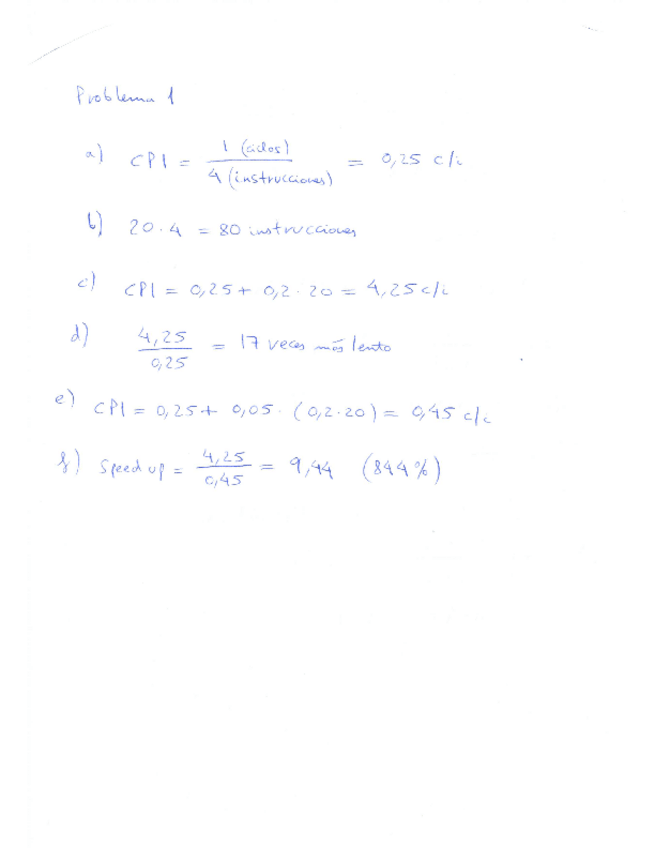 Problema 1
a) CPI = 1 (ciclos) / 4 (instrucciones) = 0,25 c/i
b) 20 · 4 = 80 instrucciones
c) CPI = 0,25 + 0,2 · 20 = 4,25 c/i
d) 4,25 / 0,25 = 17 veces más lento
e) CPI = 0,25 + 0,05 · (0,2 · 20) = 0,45 c/i
f) Speed up = 4,25 / 0,45 = 9,44 (844%)